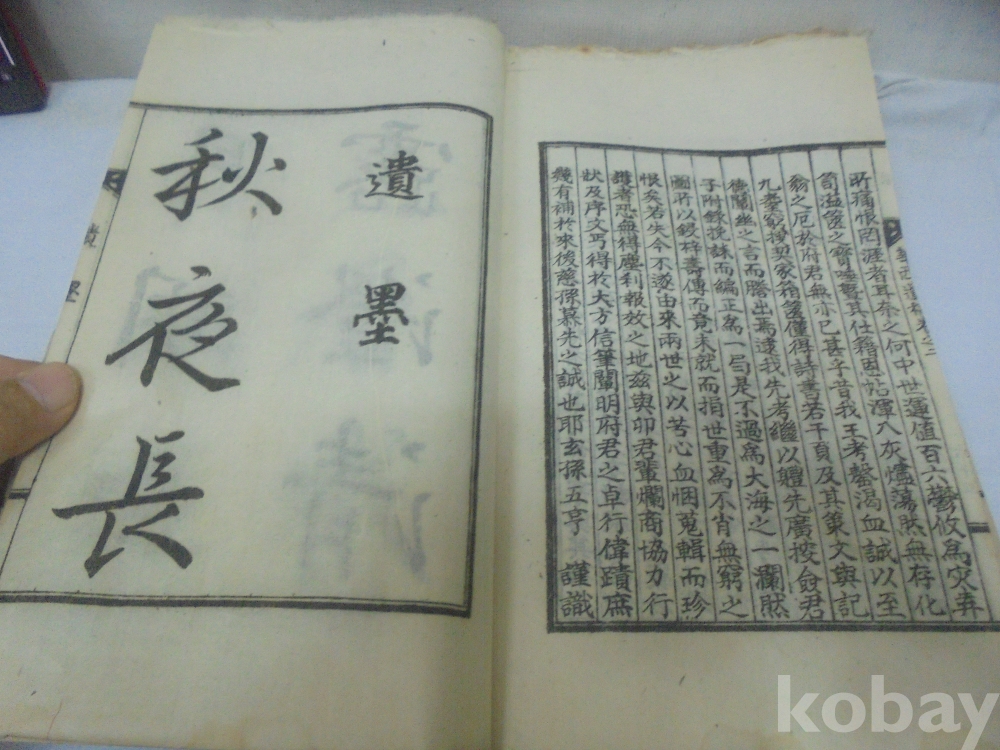 所痛恨罔涯者耳奈之何中世運值百六鬱攸為灾弆
笥溢篋之寶唾㬥其仕籍因帖潭入灰燼蕩然無存化
翁之厄於府君無小已甚乎昔我王考罄渴血誠以至
九耋窮搜契家箱篋僅得詩書若干頁及其策文與記
德闡幽之言而謄出焉逮我先考繼以軆先廣按僉君
子附錄挽誄而編正為一局是不過為大海之一瀾然
圖所以鋟梓壽傳而竟未就而捐世重為不肖無窮之
恨矣若失今不遂由來兩世之以苦心血悃蒐輯而珍
護者恐無得塵利報效之地玆與卯君輩爛商協力行
狀及序文丐得於大方信筆闡明府君之卓行偉蹟庶
幾有補於來後慈孫慕先之誠也耶玄孫五亨謹識
遺墨
秋夜長
遺墨
kobay